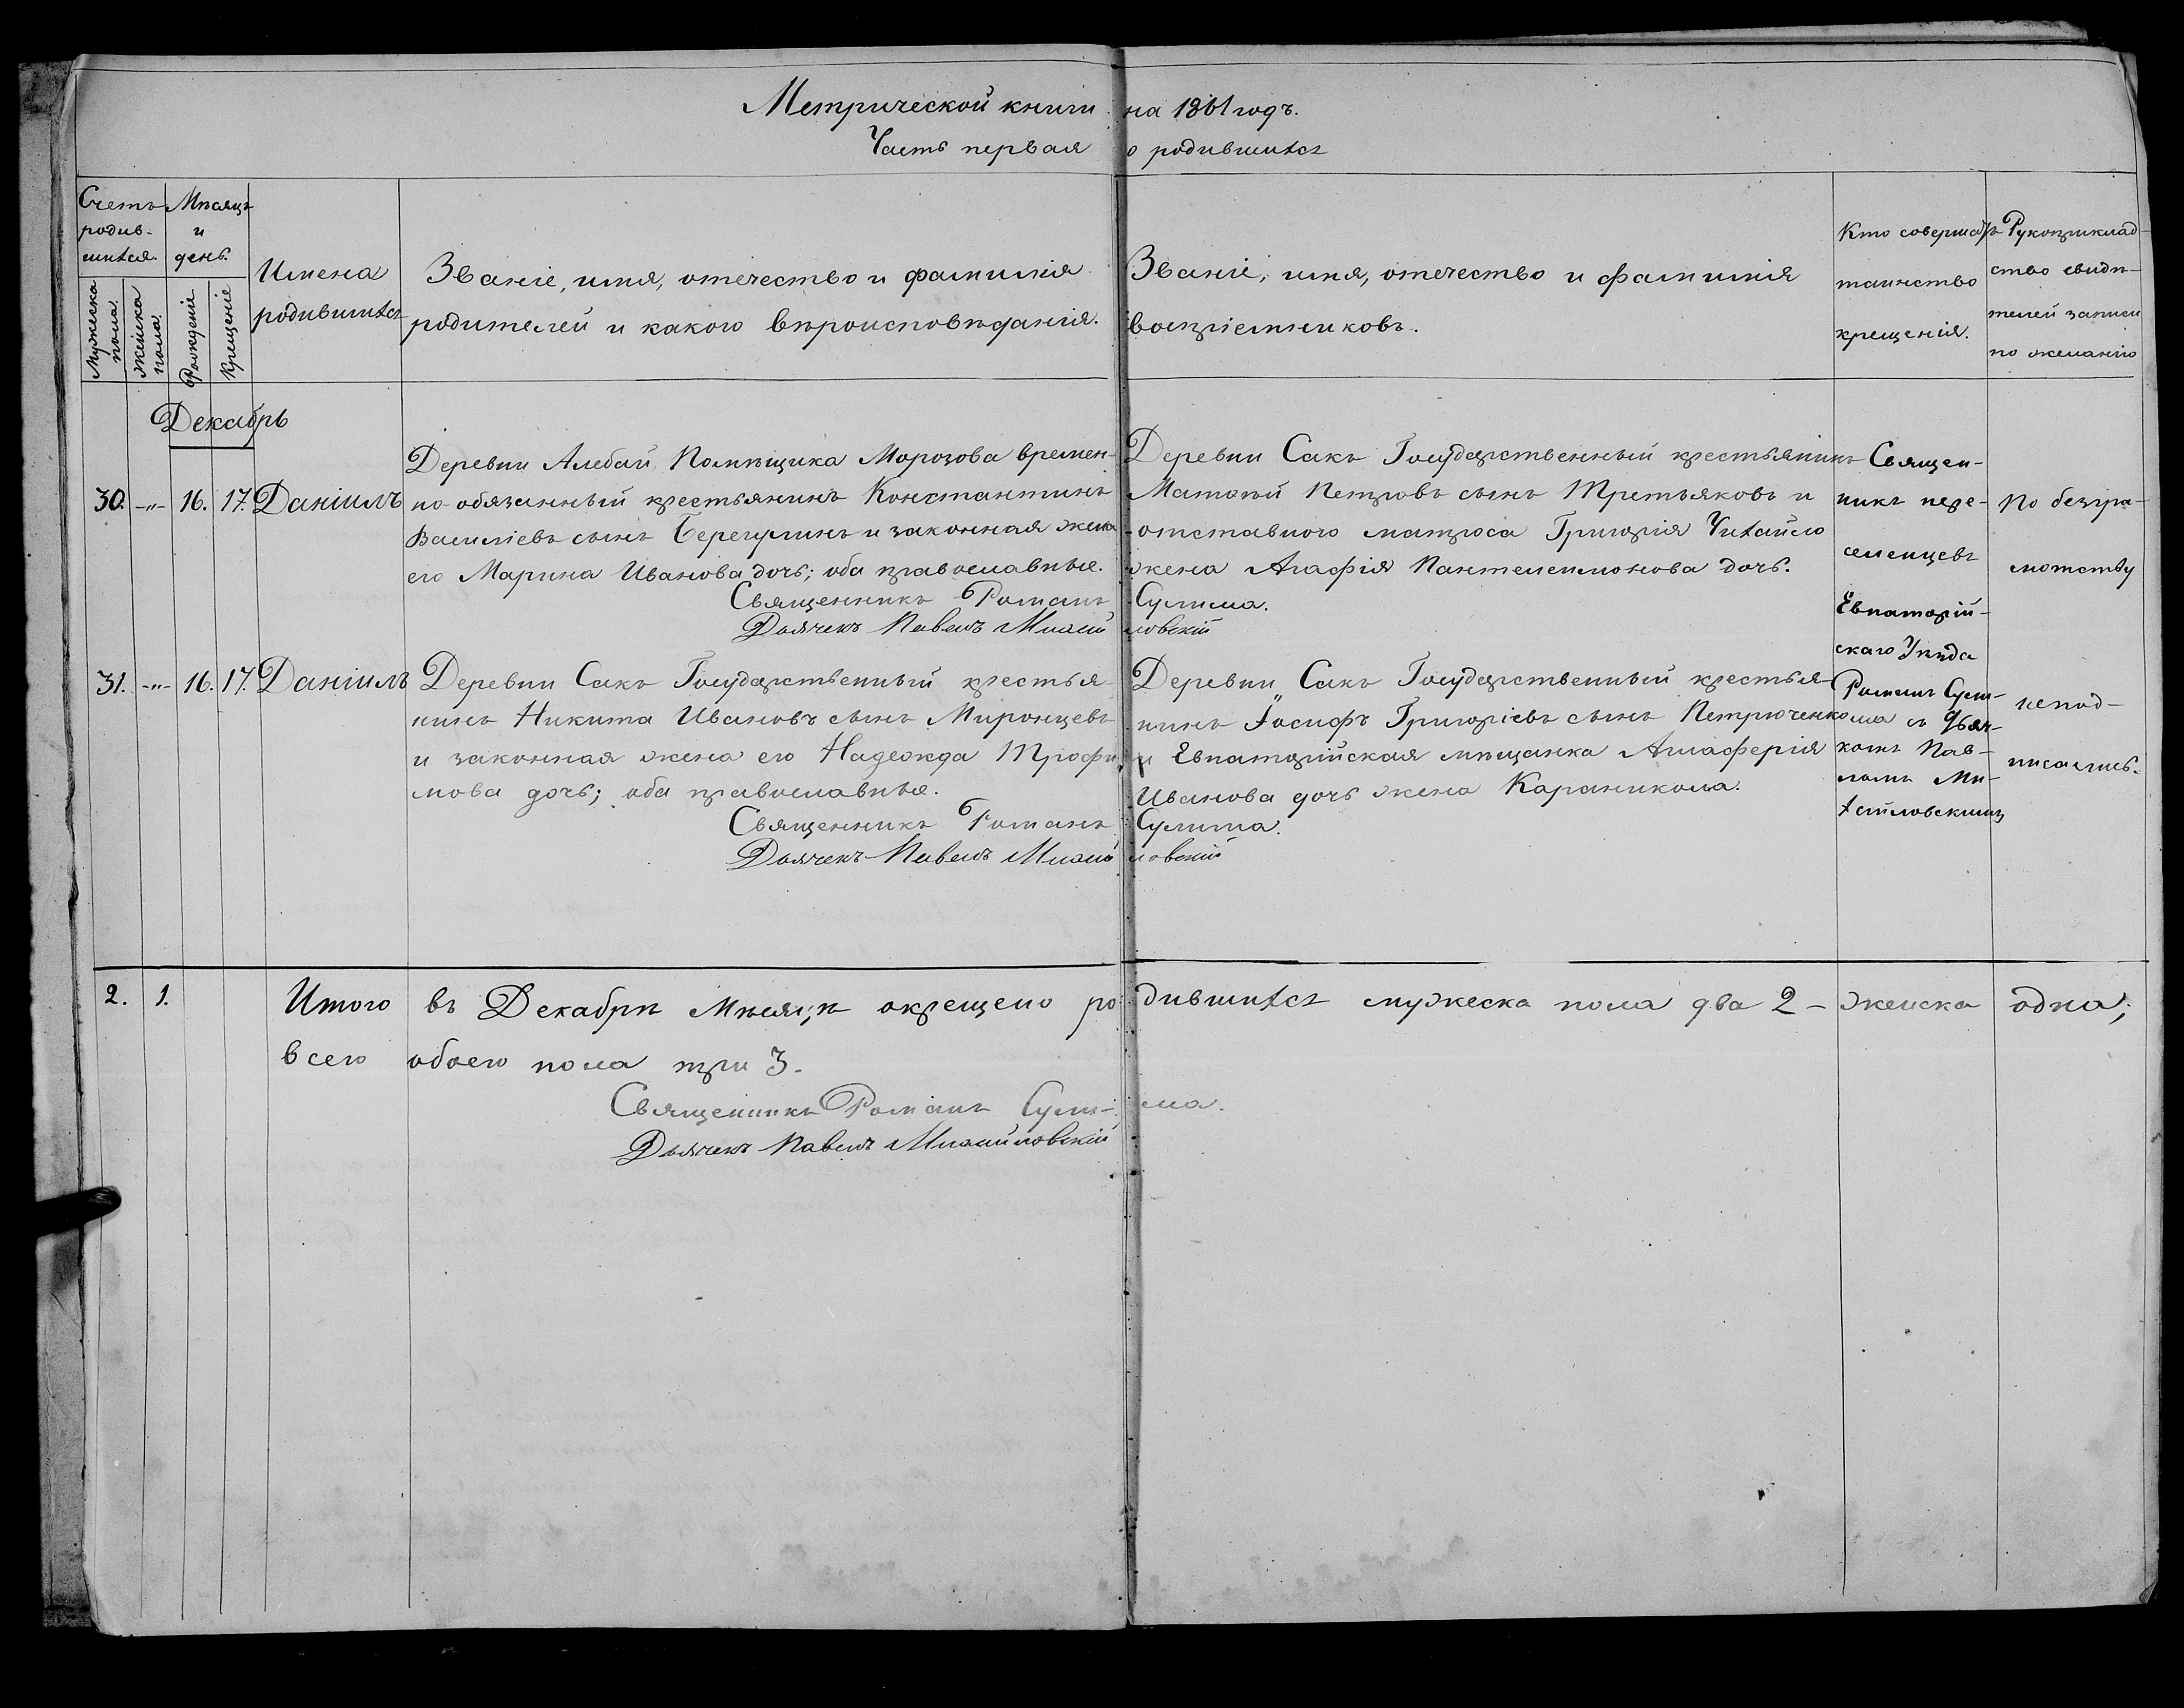 Метрической книги на 1861 годъ.
Часть первая о родившихся
Счетъ родив-шихся.
Мужеска пола.
Женска пола.
Мѣсяцъ и день.
Рожденіе
Крещеніе
Имена родившихся
Званіе, имя, отечество и фамилія
родителей и какого вѣроисповѣданія.
Званіе, имя, отечество и фамилія
воспріемниковъ.
Кто совершалъ
таинство
крещенія.
Рукоприклад-
ство свидѣ-
телей записи
по желанію
Декабрь
30. -"- 16. 17. Даніилъ
Деревни Алебай Помѣщика Морозова времен-
но-обязанный крестьянинъ Константинъ
Василіевъ сынъ и законная жена
его Марина Иванова дочь; оба православные.
Деревни Сакъ Государственный крестьянинъ
Матѳѣй Петровъ сынъ Третьяковъ и
отставного матроса Григорія Чихайло
жена Агафія Пантелеимонова дочь.
Священникъ Романъ Сулима.
Дьячекъ Павелъ Михайловскій
Священ-
никъ пере-
селенцевъ
Евпаторій-
скаго Уѣзда
Романъ Сул-
има съ дьяч-
комъ Пав-
ломъ Ми-
хайловскимъ
По безгра-
мотству
неподпи-
сались.
31. -"- 16. 17. Даніилъ
Деревни Сакъ Государственный крестья-
нинъ Никита Ивановъ сынъ Миронцевъ
и законная жена его Надежда Трофи-
мова дочь; оба православные.
Деревни Сакъ Государственный крестья-
нинъ Іосифъ Григоріевъ сынъ Петрюченко
и Евпаторійская мѣщанка Агаферія
Иванова дочь жена Караникола.
Священникъ Романъ Сулима.
Дьячекъ Павелъ Михайловскій
2. 1. Итого въ Декабрѣ Мѣсяцѣ окрещено родившихся мужеска пола два 2 - женска одна;
всего обоего пола три 3.
Священникъ Романъ Сулима.
Дьячекъ Павелъ Михайловскій